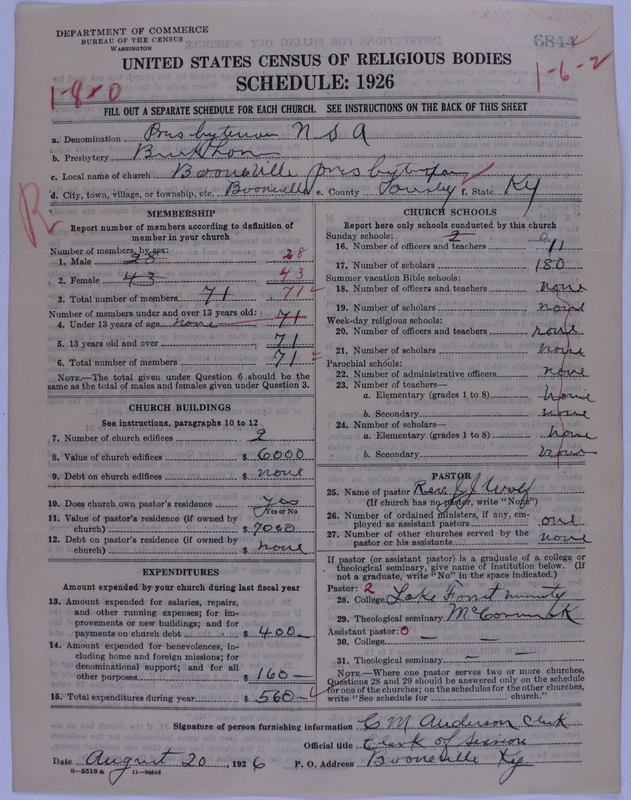 DEPARTMENT OF COMMERCE
BUREAU OF THE CENSUS
WASHINGTON
6844
UNITED STATES CENSUS OF RELIGIOUS BODIES
SCHEDULE: 1926
1-8-0
1-6-2
FILL OUT A SEPARATE SCHEDULE FOR EACH CHURCH. SEE INSTRUCTIONS ON THE BACK OF THIS SHEET
a. Denomination Presbyterian U S A
b. Presbytery
c. Local name of church Booneville Presbyterian
d. City, town, village, or township, etc. Booneville e. County Owsley f. State Ky
R
MEMBERSHIP
Report number of members according to definition of member in your church
Number of members, by sex:
1. Male 28 28
2. Female 43 43
3. Total number of members 71 71
Number of members under and over 13 years old:
4. Under 13 years of age none 71
5. 13 years old and over 71
6. Total number of members 71
NOTE.—The total given under Question 6 should be the same as the total of males and females given under Question 3.
CHURCH BUILDINGS
See instructions, paragraphs 10 to 12
7. Number of church edifices 2
8. Value of church edifices $ 6000
9. Debt on church edifices $ none
10. Does church own pastor's residence yes
Yes or No
11. Value of pastor's residence (if owned by church) $ 7000
12. Debt on pastor's residence (if owned by church) $ none
EXPENDITURES
Amount expended by your church during last fiscal year
13. Amount expended for salaries, repairs, and other running expenses; for improvements or new buildings; and for payments on church debt $ 400
14. Amount expended for benevolences, including home and foreign missions; for denominational support; and for all other purposes $ 160
15. Total expenditures during year $ 560
CHURCH SCHOOLS
Report here only schools conducted by this church
Sunday schools: 2
16. Number of officers and teachers 11
17. Number of scholars 180
Summer vacation Bible schools:
18. Number of officers and teachers none
19. Number of scholars none
Week-day religious schools:
20. Number of officers and teachers none
21. Number of scholars none
Parochial schools:
22. Number of administrative officers none
23. Number of teachers—
a. Elementary (grades 1 to 8) none
b. Secondary none
24. Number of scholars—
a. Elementary (grades 1 to 8) none
b. Secondary none
PASTOR
25. Name of pastor Rev J J Wolf
(If church has no pastor, write "None")
26. Number of ordained ministers, if any, employed as assistant pastors one
27. Number of other churches served by the pastor or his assistants none
If pastor (or assistant pastor) is a graduate of a college or theological seminary, give name of institution below. (If not a graduate, write "No" in the space indicated.)
Pastor: 2
28. College Lake Forest
29. Theological seminary McCormick
Assistant pastor: 0
30. College — —
31. Theological seminary — —
NOTE.—Where one pastor serves two or more churches, Questions 28 and 29 should be answered only on the schedule for one of the churches; on the schedules for the other churches, write "See schedule for church."
Signature of person furnishing information C M Anderson Clerk
Official title Clerk of Session
Date August 20, 1926 P. O. Address Booneville Ky
8—5518 a 11—9054d